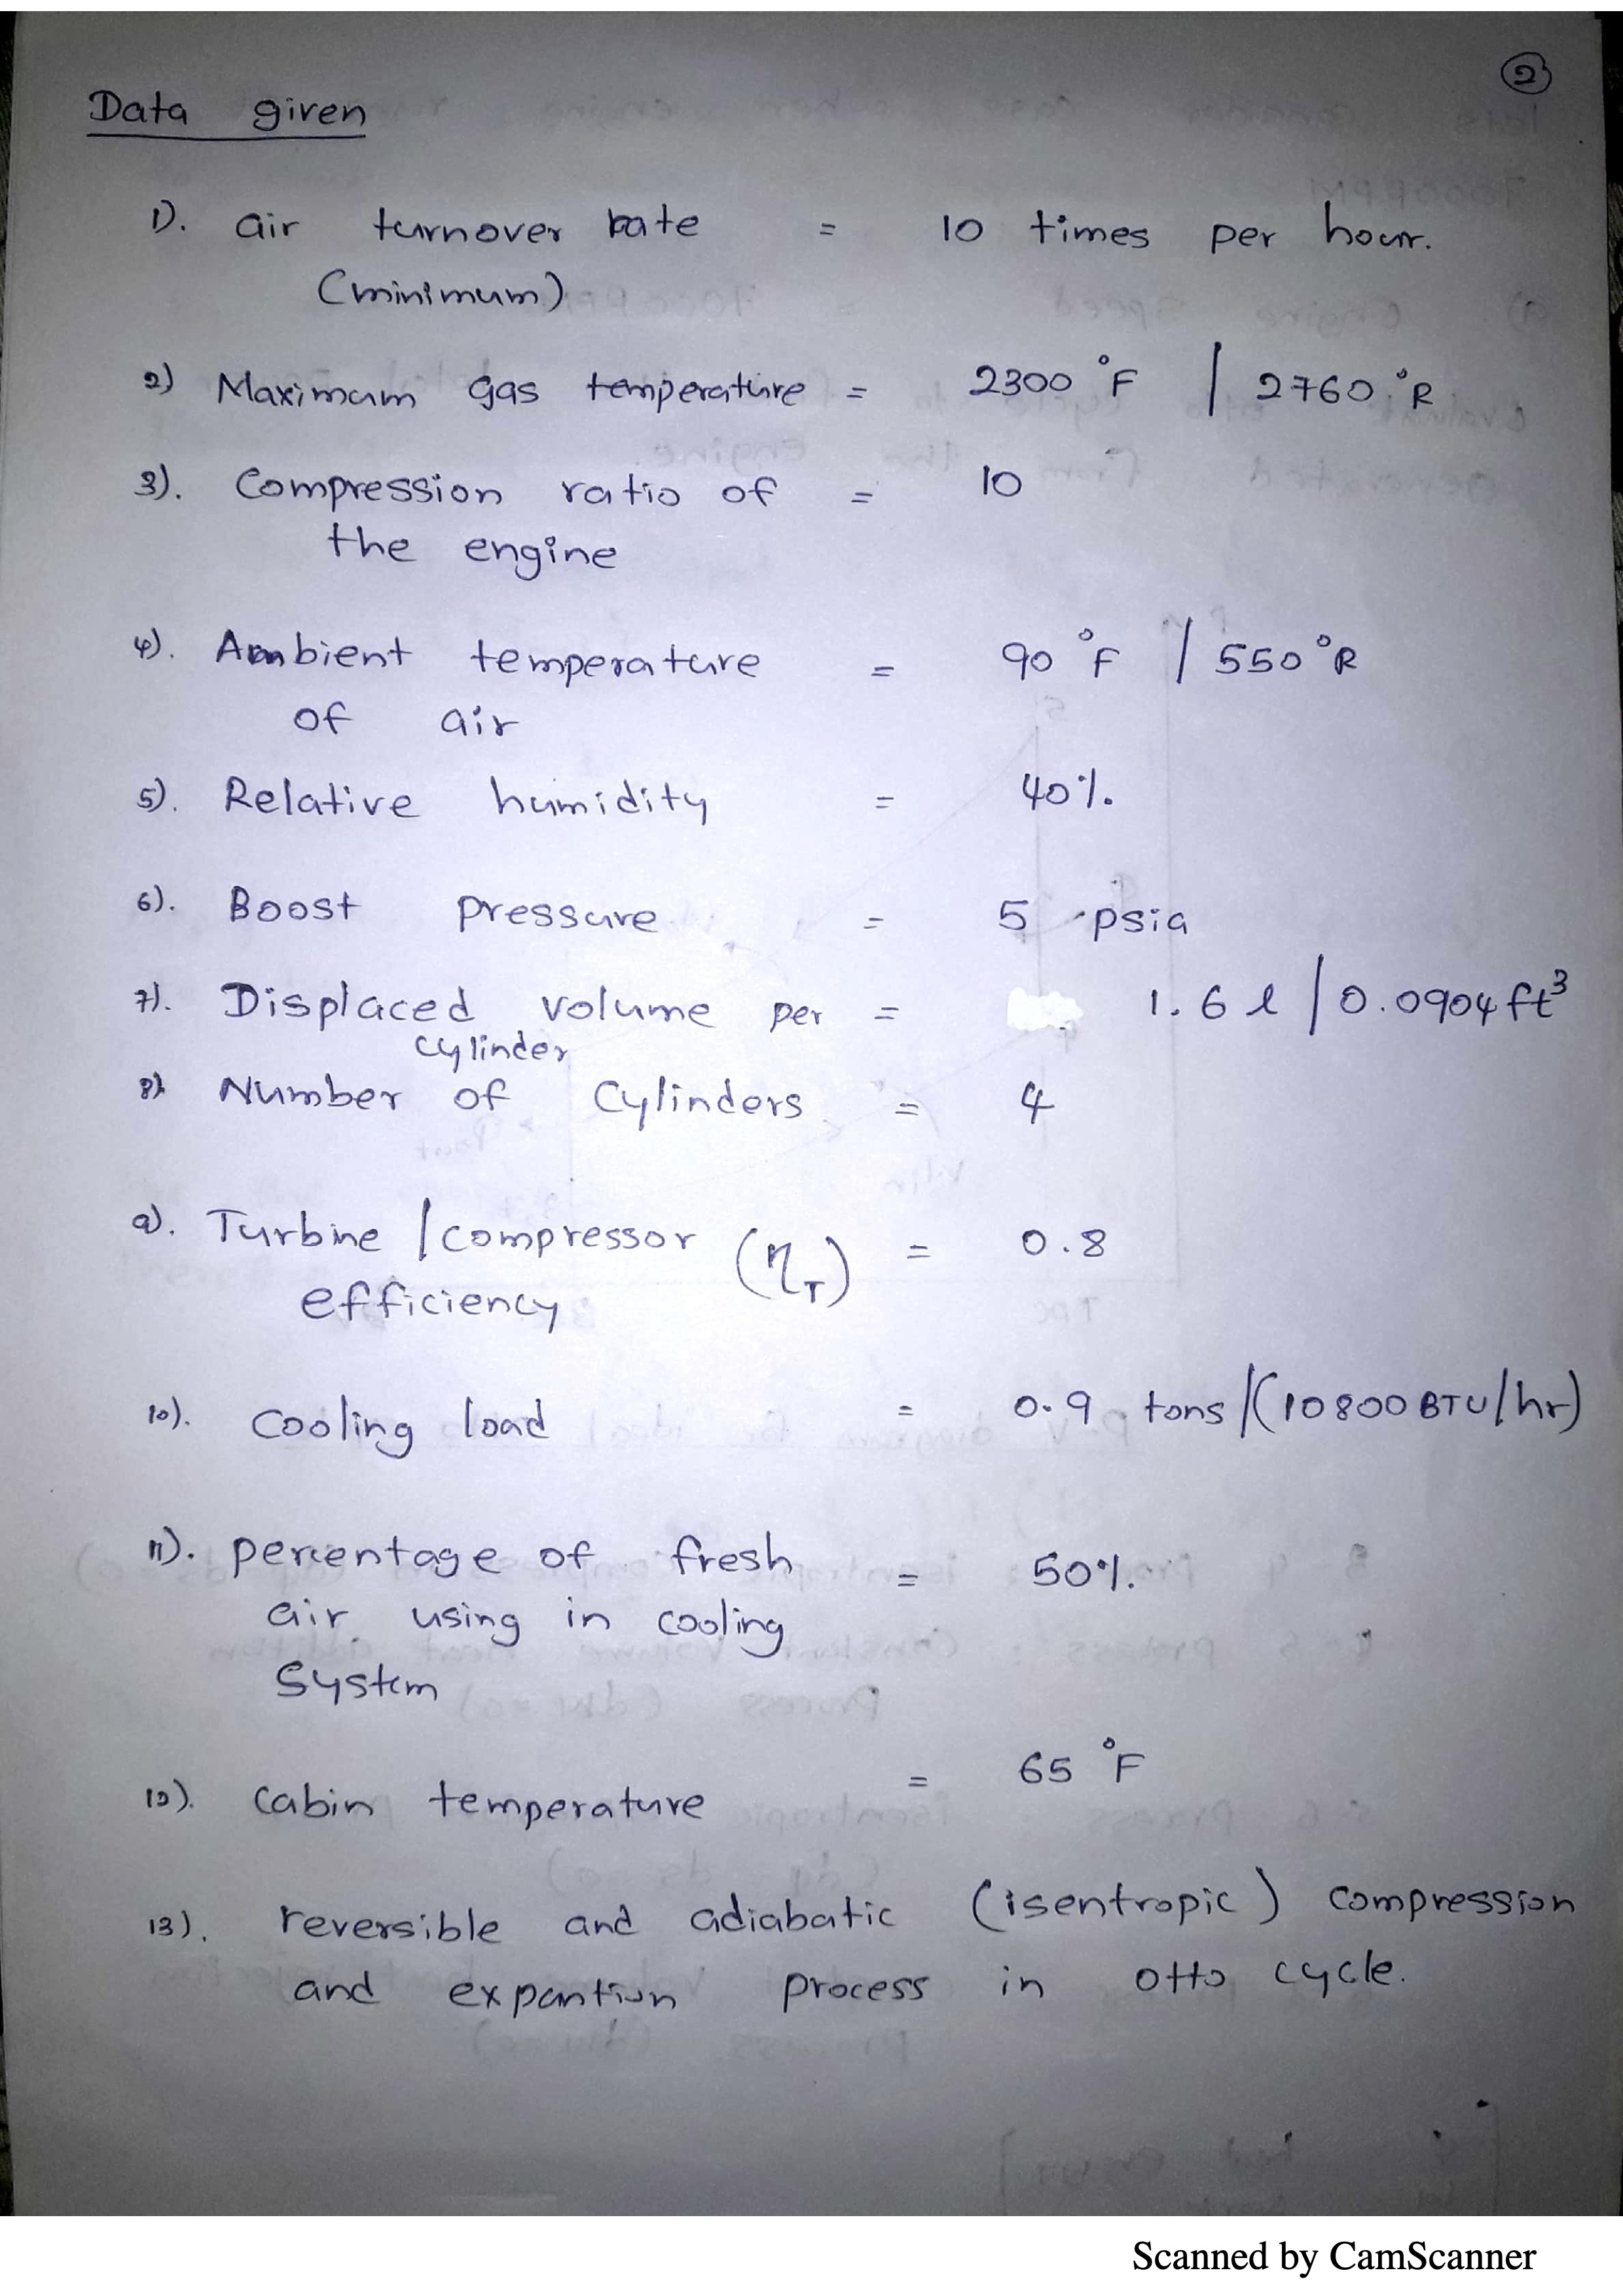 2
Data given
1). air turnover rate = 10 times per hour.
(minimum)
2) Maximum gas temperature = 2300 °F | 2760 °R
3). Compression ratio of = 10
the engine
4). Ambient temperature = 90 °F | 550 °R
of air
5). Relative humidity = 40%.
6). Boost pressure = 5 psia
7). Displaced volume per = 1.6 l | 0.0904 ft³
cylinder
8). Number of Cylinders = 4
9). Turbine / compressor (η_T) = 0.8
efficiency
10). Cooling load = 0.9 tons / (10800 BTU/hr)
11). percentage of fresh = 50%.
air using in cooling
System
12). Cabin temperature = 65 °F
13). reversible and adiabatic (isentropic) compression
and expantion process in otto cycle.
Scanned by CamScanner